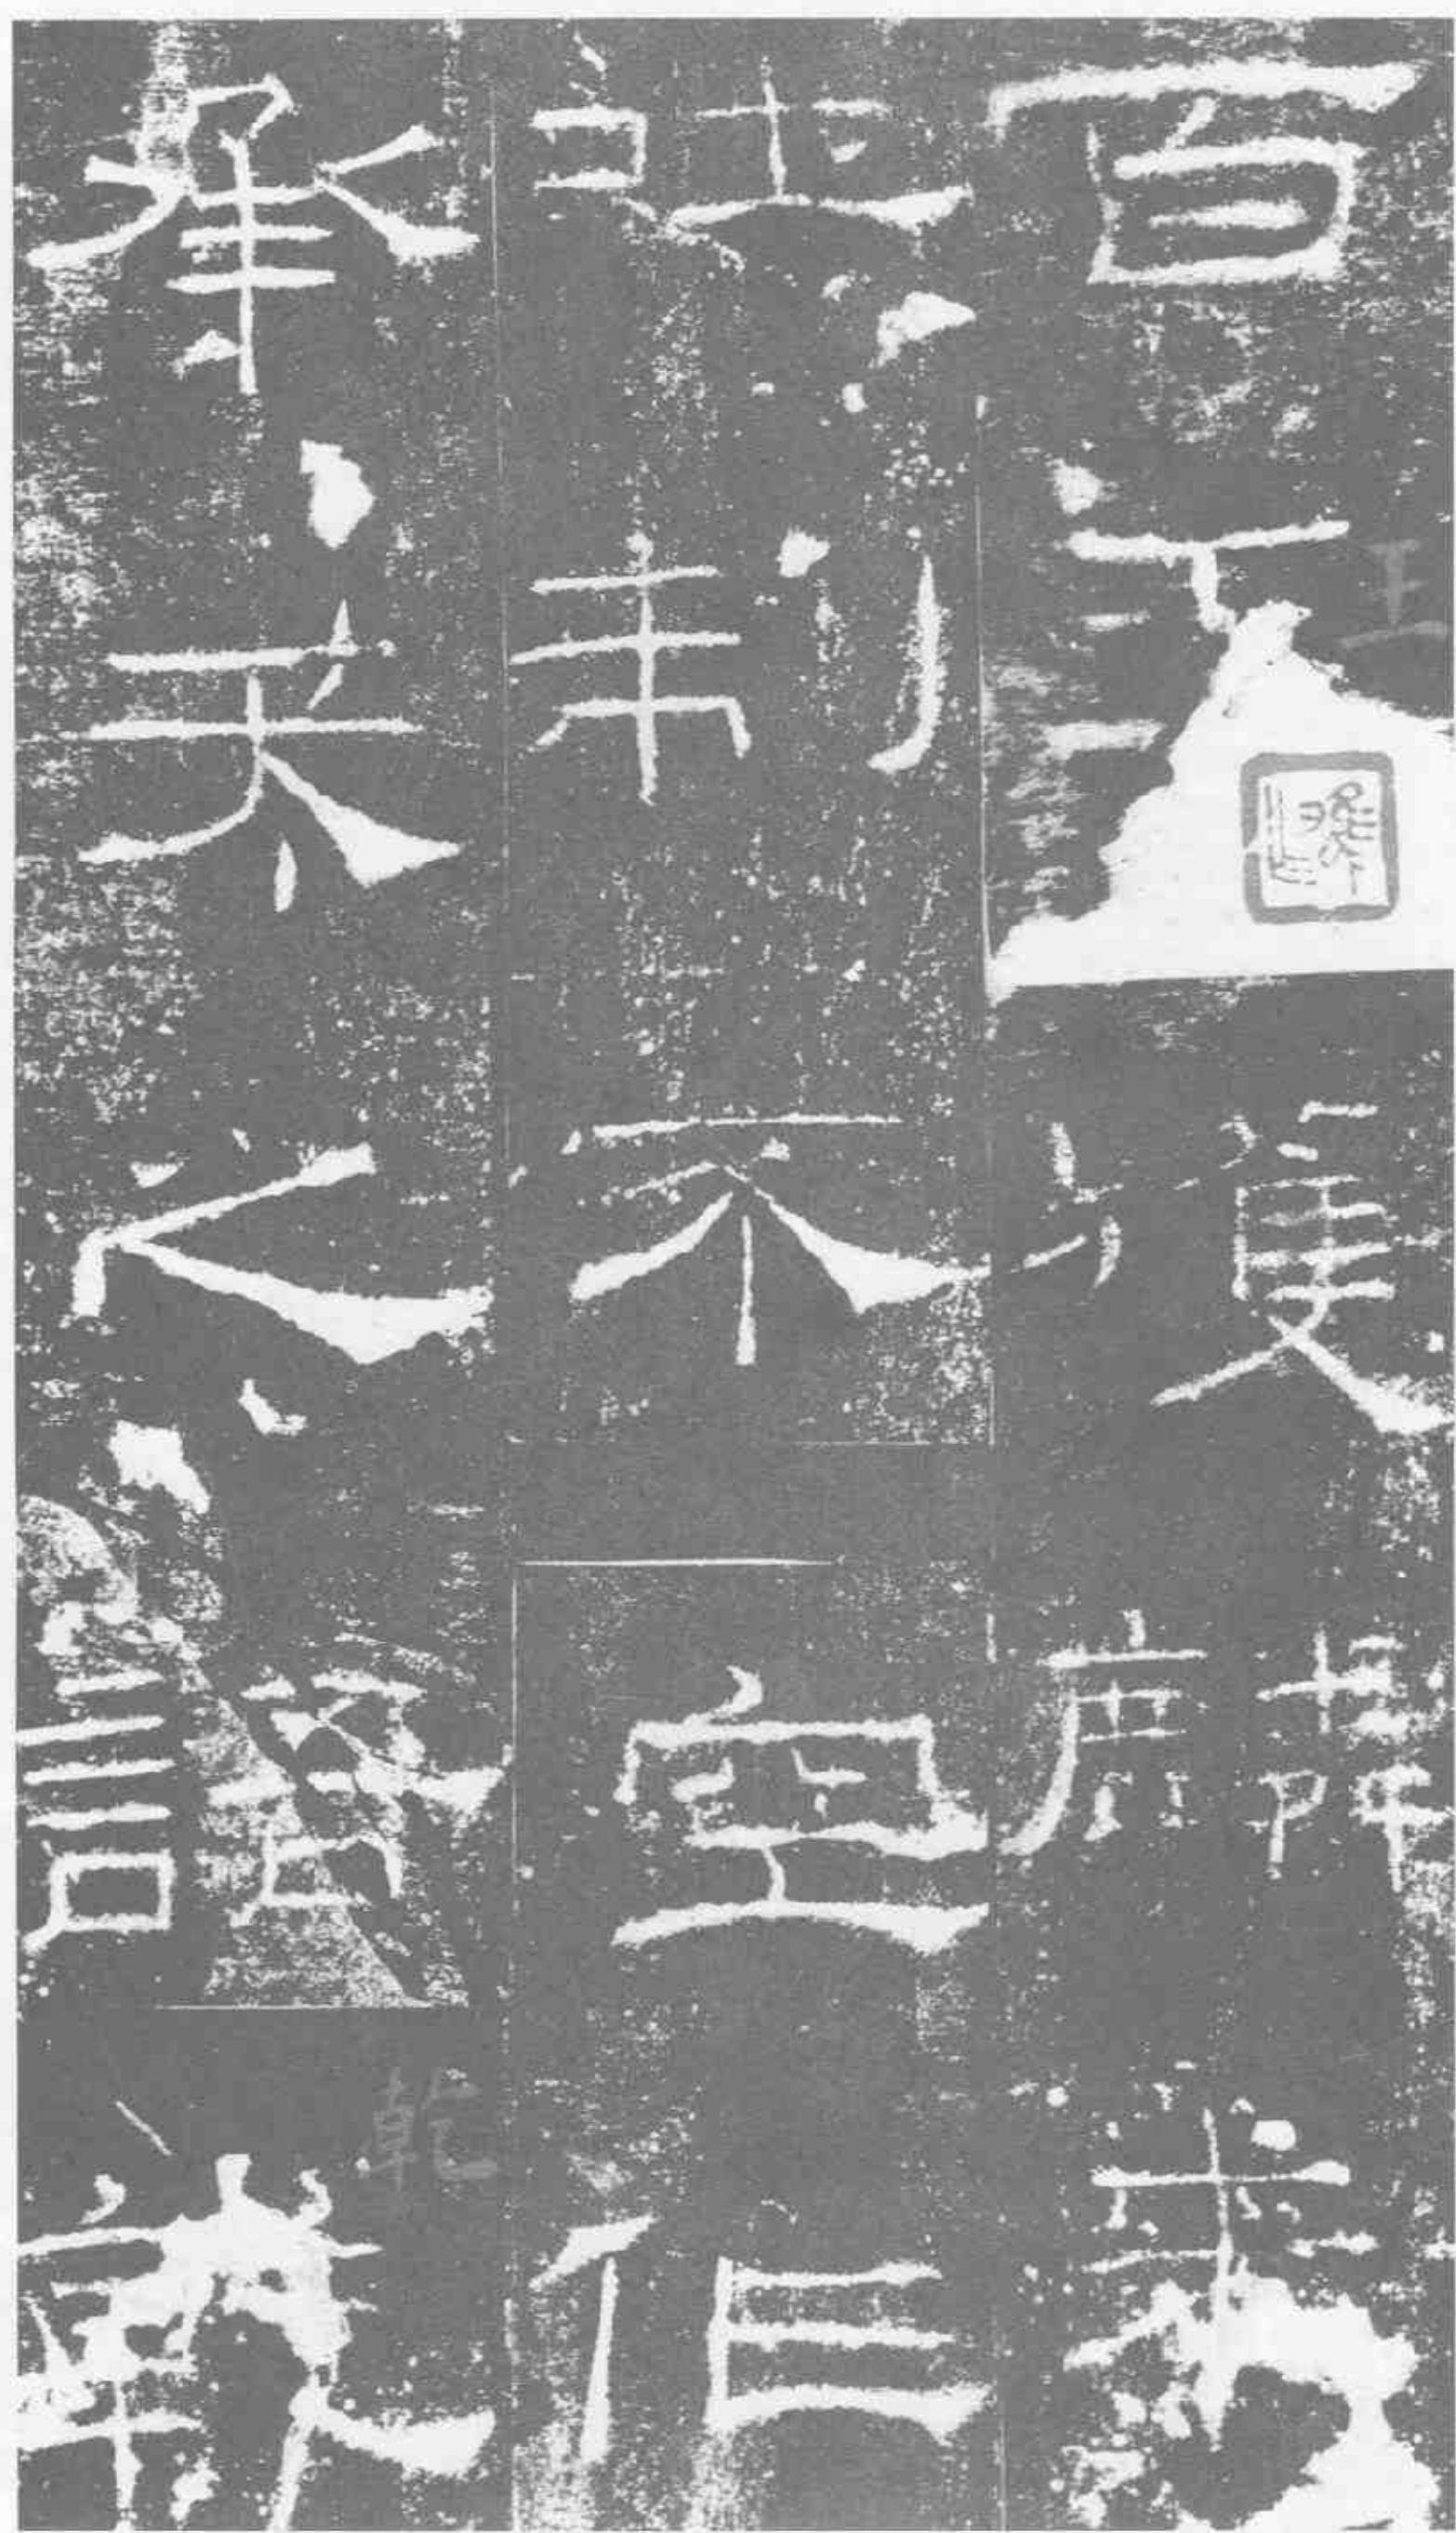 百王獲麟來
吐制不空作
承天之語乾